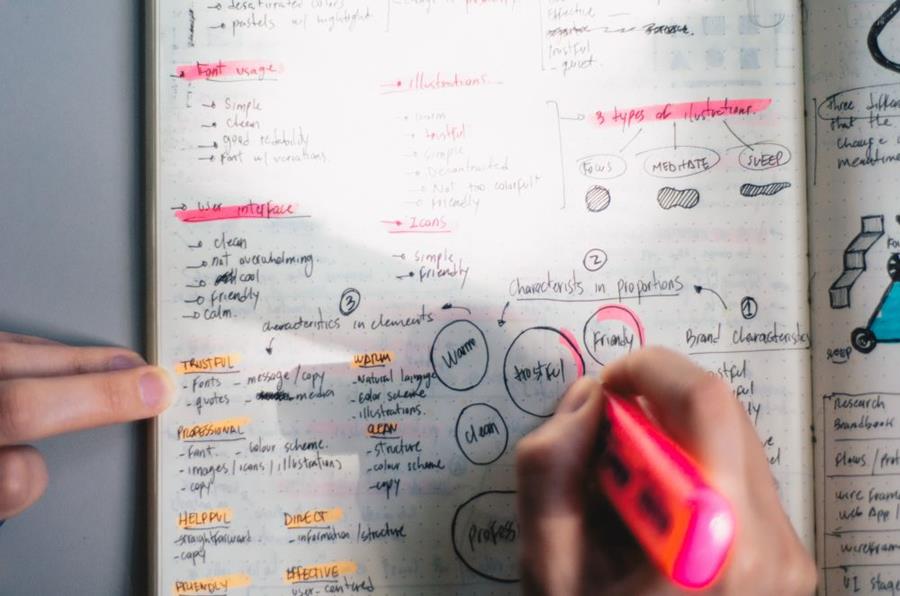 desaturated colors
pastels w/ highlight
→ Font usage
→ Simple
→ clean
→ good readability
→ Font w/ variations
→ User interface
→ clean
→ not overwhelming
→ cool
→ Friendly
→ calm
→ illustrations
→ warm
→ trustful
→ simple
→ Not too colorful
→ Friendly
→ Icons
→ simple
→ Friendly
Effective
trustful
- quiet
→ 3 types of ilustrations.
FOCUS
MEDITATE
SLEEP
②
Characterists in proportions
③
characteristics in elements
①
Brand Characteristics
TRUSTFUL
- Fonts - message/copy
- quotes - media
PROFESSIONAL
- Font - colour scheme.
- images/icons/illustrations
- copy
HELPFUL
- straightforward
- copy
FRIENDLY
WARM
- Natural language
- color scheme
- illustrations.
CLEAN
- structure
- colour scheme
- copy
DIRECT
- information/structure
EFFECTIVE
user-centered
Warm
trustful
Friendly
clean
professi
three differen
that the
change
meantim
SLEEP
Research
Brandbook
Flows/Prot
wire fram
web App/
wirefram
UI stage